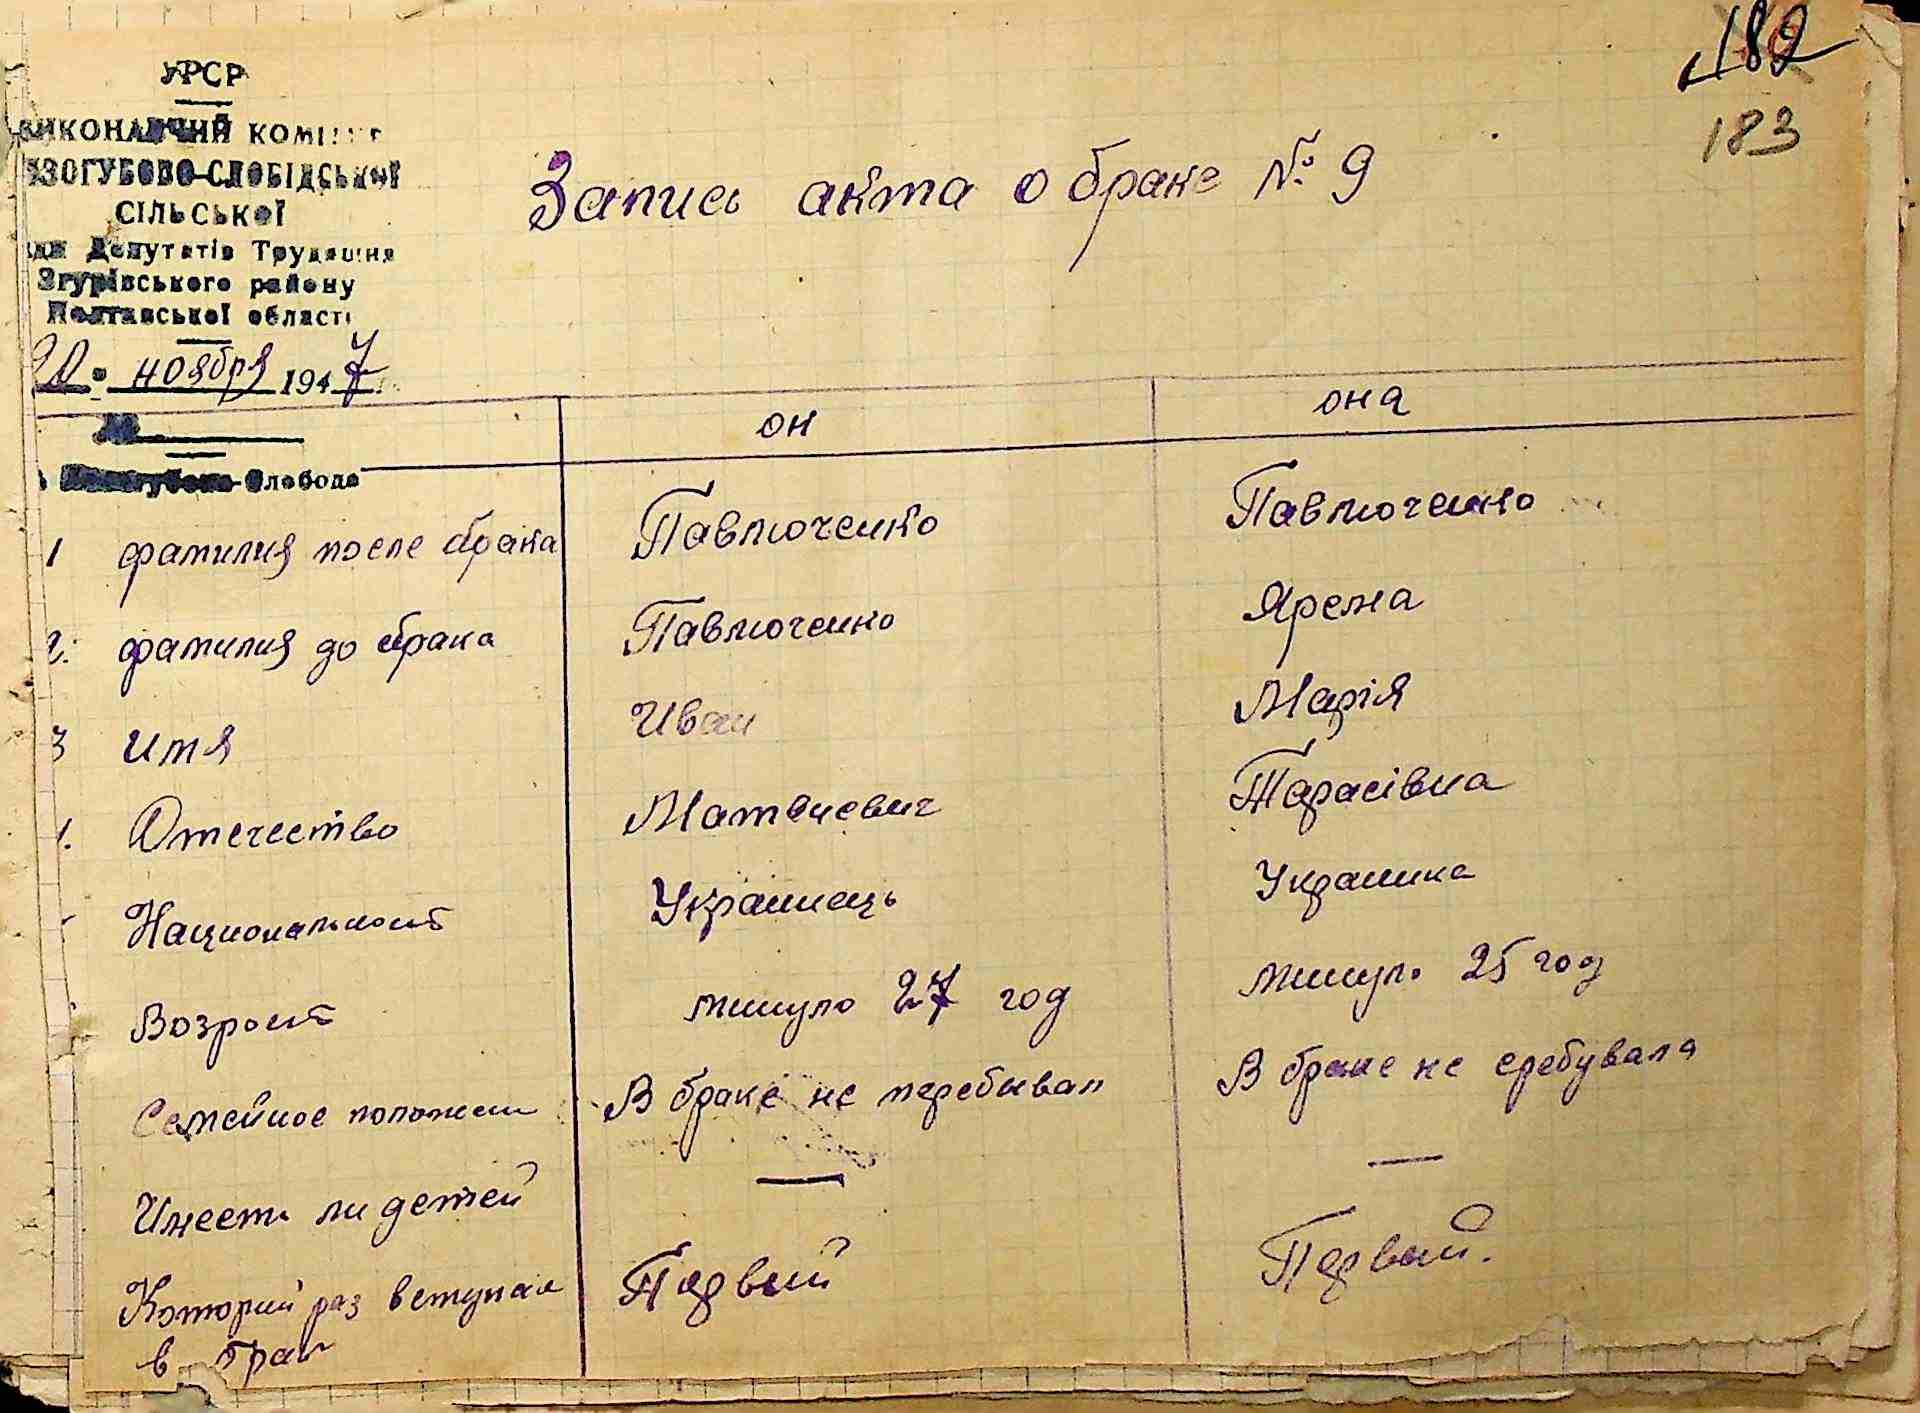 182
183
УРСР
ВИКОНАВЧИЙ КОМІТЕТ
ЛИЗОГУБОВО-СЛОБІДСЬКОЇ
СІЛЬСЬКОЇ
Ради Депутатів Трудящих
Згурівського району
Полтавської області
20 ноября 1947
Запись акта о браке № 9
он она
Слобода
1 фамилия после брака Павлюченко Павлюченко
2. фамилия до брака Павлюченко Ярема
3 имя Иван Марія
Отечество Матвиевич Тарасівна
Националност Украинець Украинка
Возраст минуло 27 год минуло 25 год
Семейное положени В браке не перебывал В браке не сребувала
Имеет ли детей — —
Который раз вступил Первий Первый.
в брак